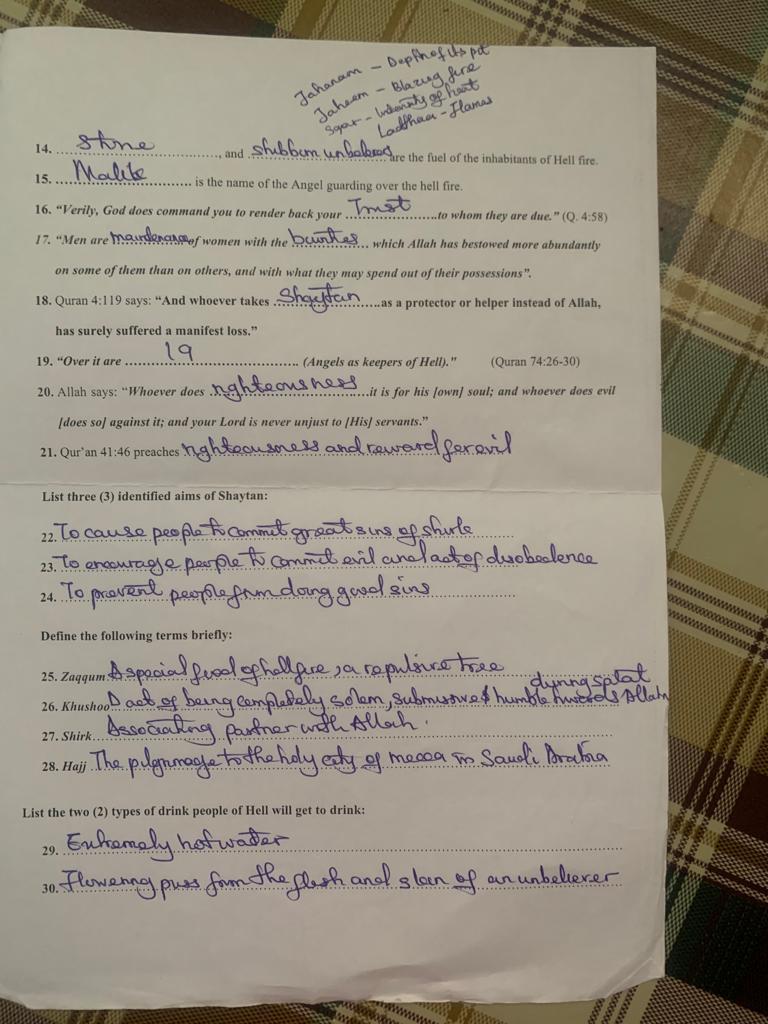 Jahanam - Depth of its pit
Jaheem - Blazing fire
Sqar - Intensity of heat
Ladthaa - Flames
14. Stone, and stubborn unbelievers are the fuel of the inhabitants of Hell fire.
15. Malik is the name of the Angel guarding over the hell fire.
16. “Verily, God does command you to render back your Trust to whom they are due.” (Q. 4:58)
17. “Men are maintenance of women with the bounties which Allah has bestowed more abundantly
on some of them than on others, and with what they may spend out of their possessions”.
18. Quran 4:119 says: “And whoever takes Shaytan as a protector or helper instead of Allah,
has surely suffered a manifest loss.”
19. “Over it are 19 (Angels as keepers of Hell).” (Quran 74:26-30)
20. Allah says: “Whoever does righteousness it is for his [own] soul; and whoever does evil
[does so] against it; and your Lord is never unjust to [His] servants.”
21. Qur’an 41:46 preaches righteousness and reward for evil
List three (3) identified aims of Shaytan:
22. To cause people to commit great sins of shirk
23. To encourage people to commit evil and act of disobedience
24. To prevent people from doing good sins
Define the following terms briefly:
25. Zaqqum A special food of hellfire, a repulsive tree
during salat
26. Khushoo act of being completely solem, submissive & humble towards Allah
27. Shirk Associating partner with Allah.
28. Hajj The pilgrimage to the holy city of mecca in Saudi Arabia
List the two (2) types of drink people of Hell will get to drink:
29. Extremely hot water
30. Flowering puss from the flesh and skin of an unbeliever